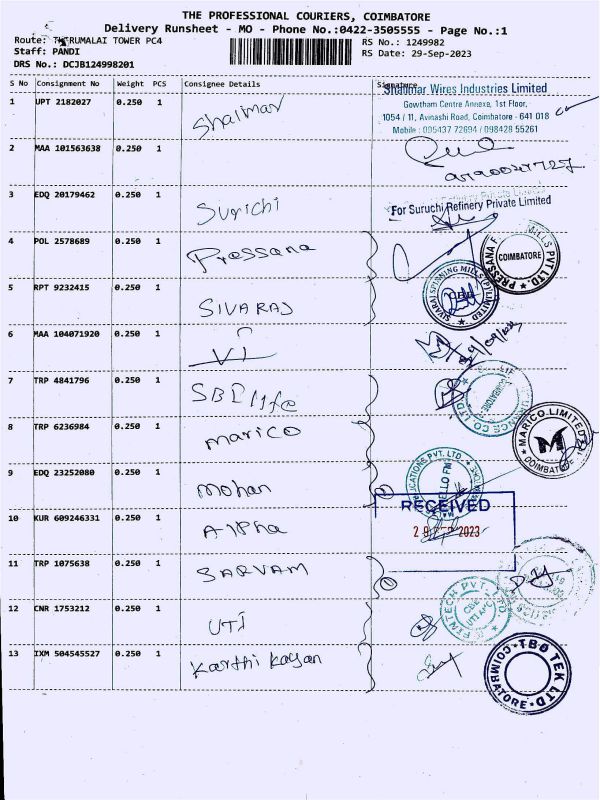 THE PROFESSIONAL COURIERS, COIMBATORE
Delivery Runsheet - MO - Phone No.:0422-3505555 - Page No.:1
Route: THIRUMALAI TOWER PC4
RS No.: 1249982
Staff: PANDI
RS Date: 29-Sep-2023
DRS No.: DCJB124998201
S No Consignment No Weight PCS Consignee Details Signature
1 UPT 2182027 0.250 1 Shalmar
Shalimar Wires Industries Limited
Gowtham Centre Annexe, 1st Floor,
1054 / 11, Avinashi Road, Coimbatore - 641 018
Mobile : 095437 72694 / 098428 55261
2 MAA 101563638 0.250 1
3 EDQ 20179462 0.250 1 Surichi
For Suruchi Refinery Private Limited
4 POL 2578689 0.250 1 Pressana
PRESSANA F MILLS PVT LTD.
COIMBATORE
5 RPT 9232415 0.250 1 SIVARAJ
SIVARAJ SPINNING MILLS (P) LIMITED
CBE
6 MAA 104071920 0.250 1 Vi
7 TRP 4841796 0.250 1 SBI life
8 TRP 6236984 0.250 1 marico
MARICO LIMITED
M
COIMBATORE
9 EDQ 23252080 0.250 1 mohan
HELLO FM
RECEIVED
10 KUR 609246331 0.250 1 Alpha
29 SEP 2023
11 TRP 1075638 0.250 1 SARVAM
12 CNR 1753212 0.250 1 UTI
FINTECH PVT. LTD
CBE
13 IXM 504545527 0.250 1 Karthi Kayan
TBO TEK LTD
COIMBATORE